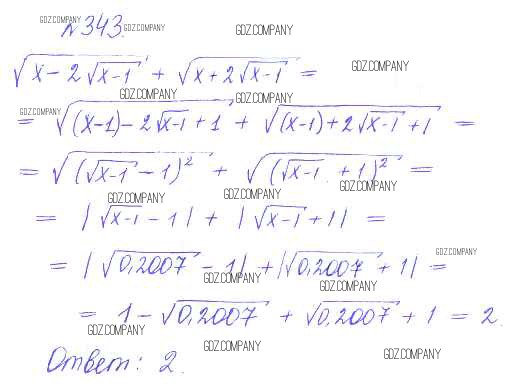 GDZ.COMPANY №343. GDZ.COMPANY GDZ.COMPANY
√(x-2√(x-1)) + √(x+2√(x-1)) = GDZ.COMPANY
GDZ.COMPANY GDZ.COMPANY
GDZ.COMPANY
= √((x-1)-2√(x-1)+1) + √((x-1)+2√(x-1)+1) =
= √((√(x-1)-1)²) + √((√(x-1)+1)²) =
GDZ.COMPANY GDZ.COMPANY GDZ.COMPANY
= |√(x-1)-1| + |√(x-1)+1| =
GDZ.COMPANY
= |√0,2007-1| + |√0,2007+1| =
GDZ.COMPANY GDZ.COMPANY
= 1-√0,2007 + √0,2007+1 = 2.
GDZ.COMPANY
Ответ: 2. GDZ.COMPANY GDZ.COMPANY